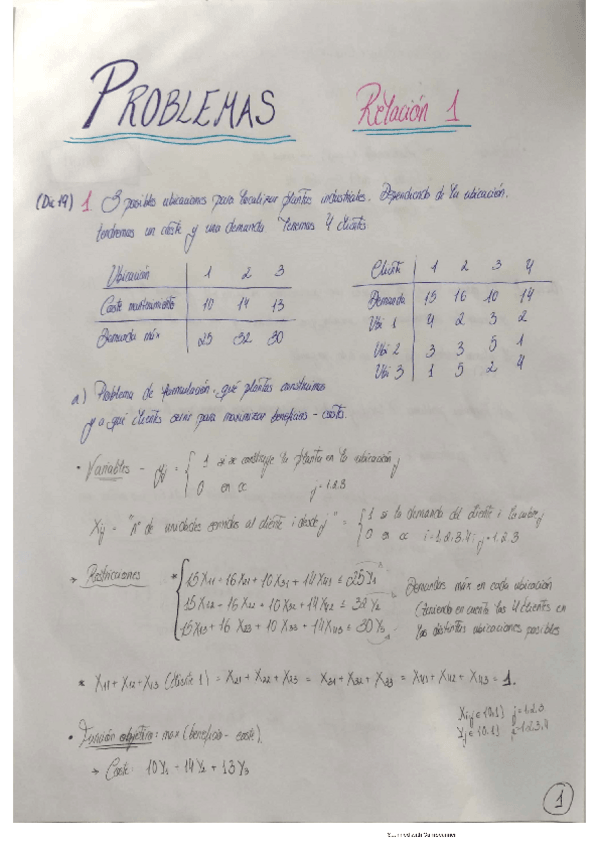 PROBLEMAS
Relación 1
(Dic 19) 1 3 posibles ubicaciones para localizar plantas industriales. Dependiendo de la ubicación,
tendremos un coste y una demanda Tenemos 4 clientes
Ubicación 1 2 3
Coste mantenimiento 10 14 13
Demanda máx 25 32 30
Cliente 1 2 3 4
Demanda 15 16 10 14
Ubi 1 4 2 3 2
Ubi 2 3 3 5 1
Ubi 3 1 5 2 4
a) Problema de formulación, qué plantas construimos
y a qué clientes servir para maximizar beneficios - costs.
• Variables - yj = { 1 si se construye la planta en la ubicación j
0 en cc j=1,2,3
Xij = "nº de unidades servidas al cliente i desde j" = { 1 si la demanda del cliente i la cubre j
0 en cc i=1,2,3,4; j=1,2,3
→ Restricciones * { 15X11 + 16X21 + 10X31 + 14X41 ≤ 25Y1
15X12 + 16X22 + 10X32 + 14X42 ≤ 32Y2
15X13 + 16X23 + 10X33 + 14X43 ≤ 30Y3
Demandas máx en cada ubicación
(teniendo en cuenta los 4 clientes en
las distintas ubicaciones posibles
* X11 + X12 + X13 (cliente 1) = X21 + X22 + X23 = X31 + X32 + X33 = X41 + X42 + X43 = 1.
Xij ∈ {0,1} j=1,2,3
Yj ∈ {0,1} i=1,2,3,4
• Función objetivo: max (beneficio - coste).
→ Coste: 10Y1 + 14Y2 + 13Y3
1